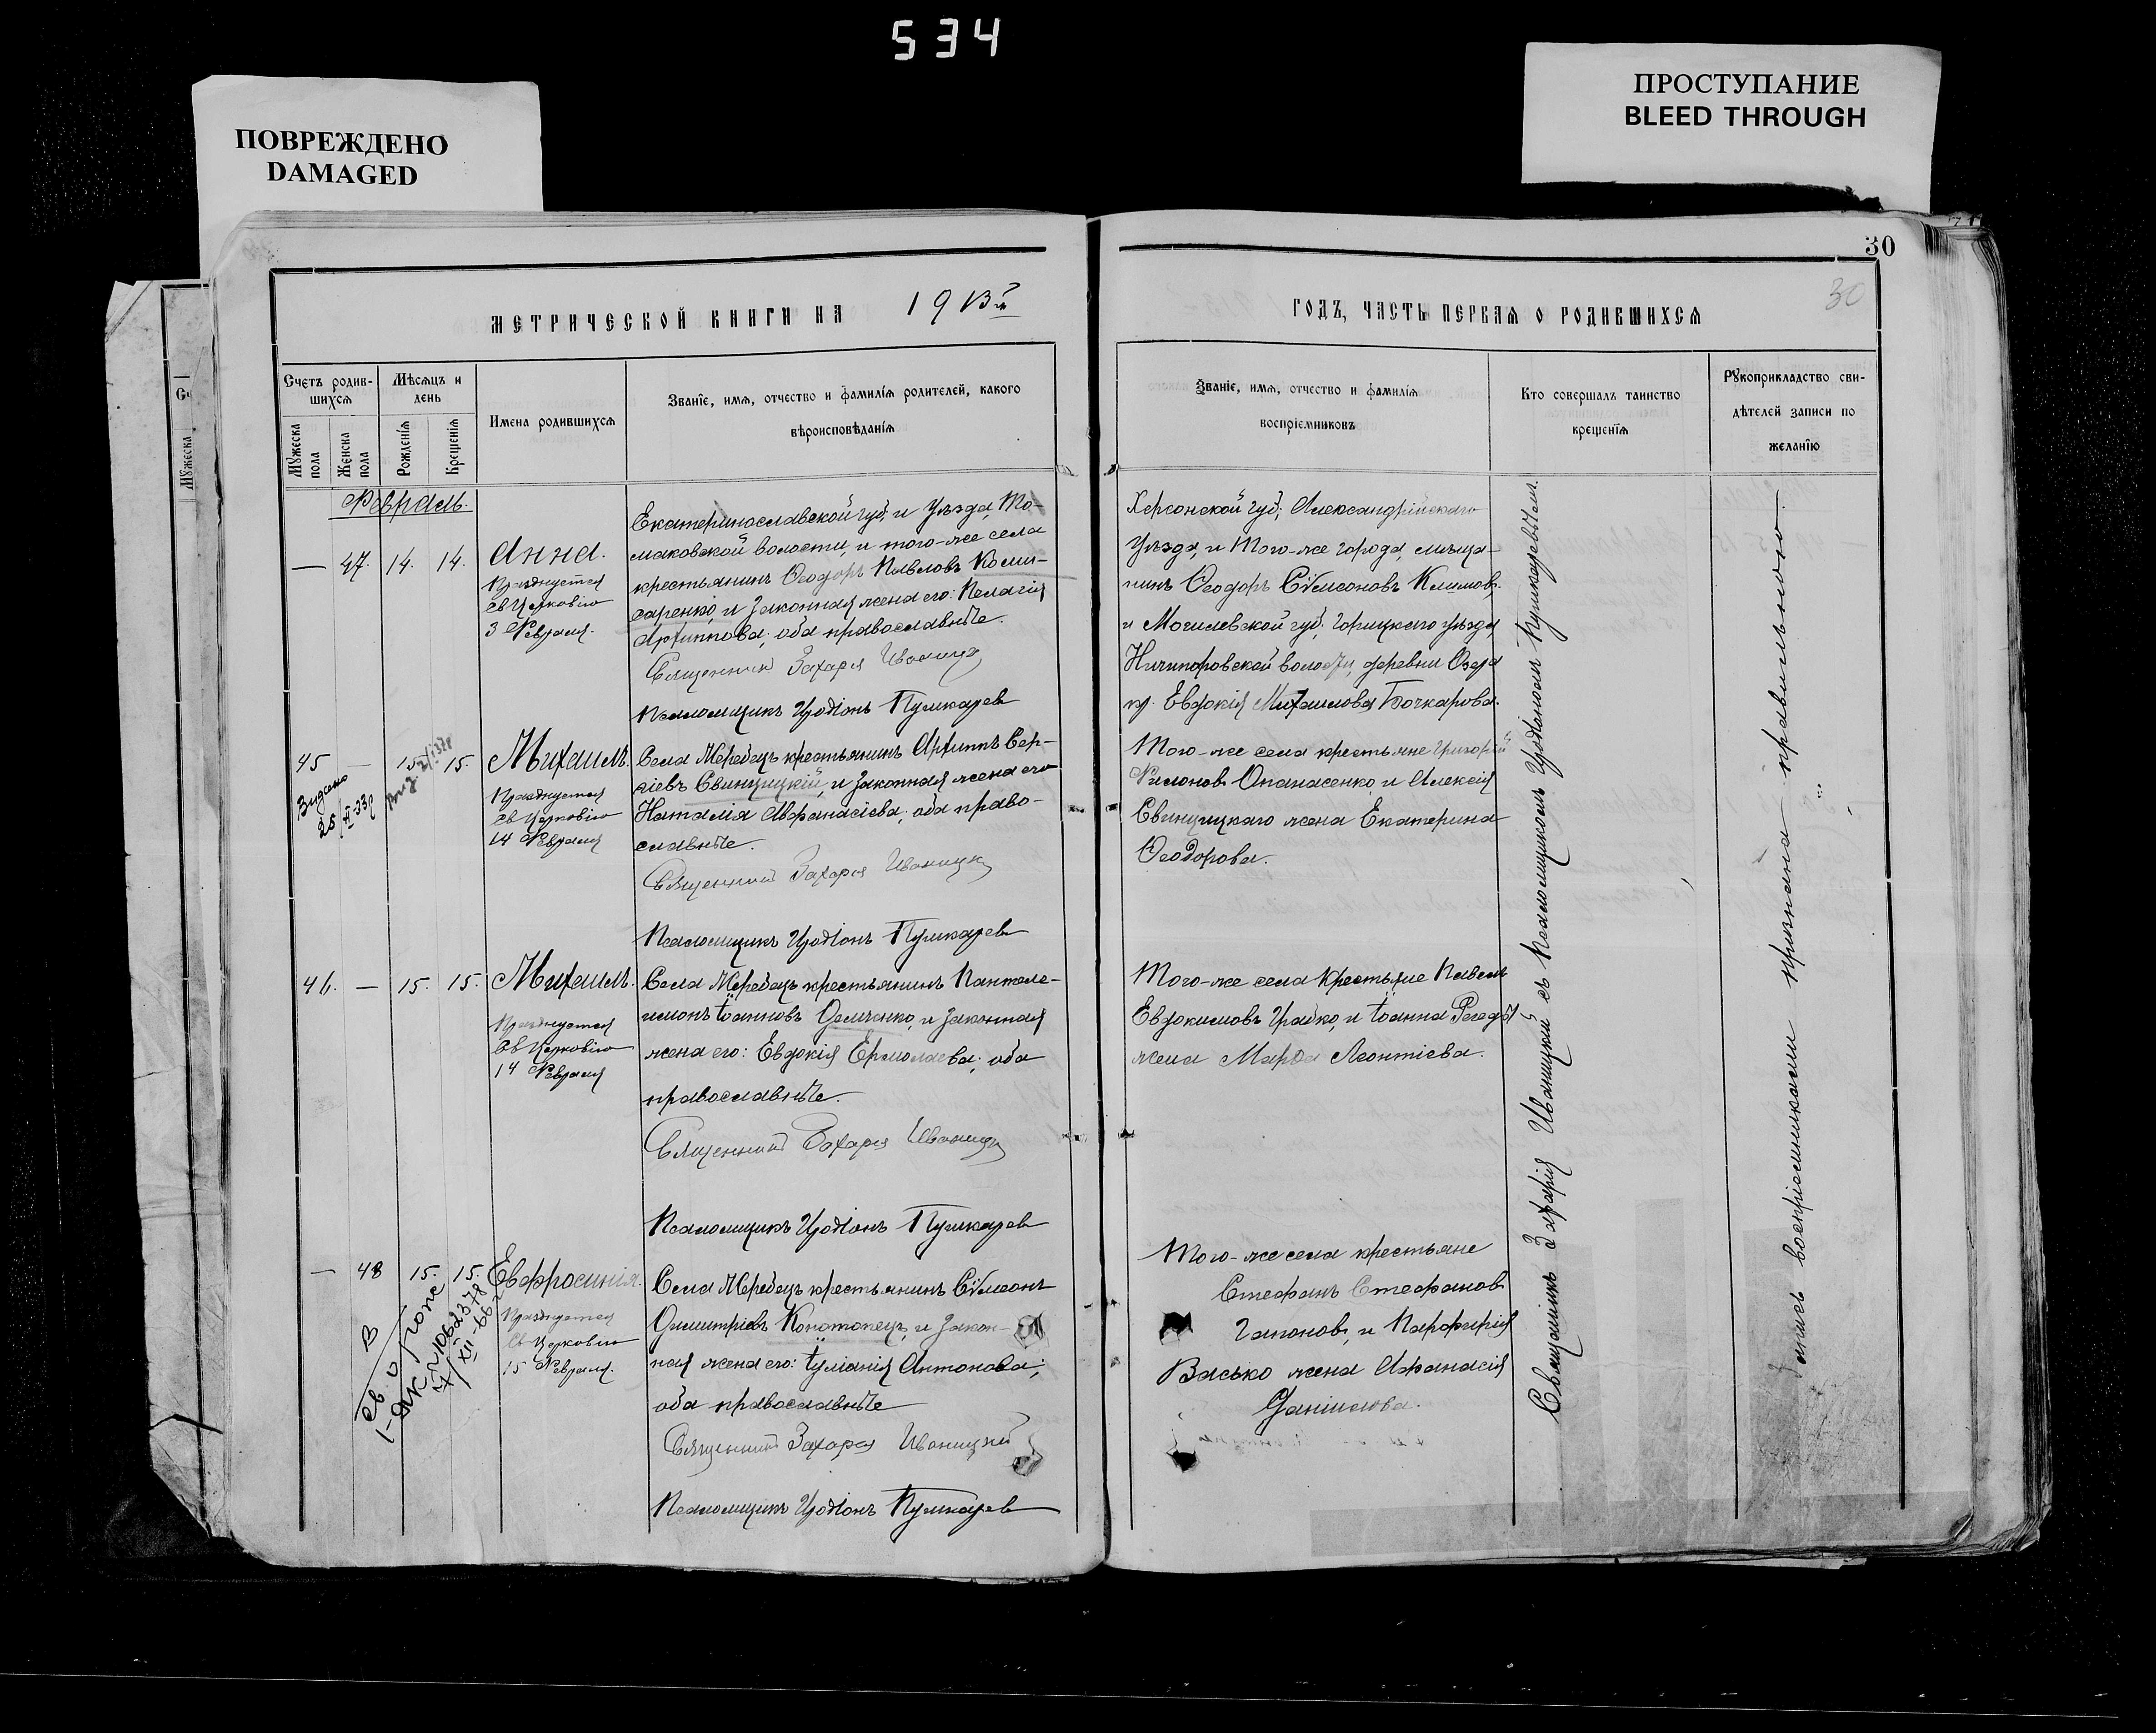 534
ПОВРЕЖДЕНО
DAMAGED
ПРОСТУПАНИЕ
BLEED THROUGH
30
30
МЕТРИЧЕСКОЙ КНИГИ НА 1913й
ГОДЪ, ЧАСТЬ ПЕРВАЯ О РОДИВШИХСЯ
Счетъ родив-
шихся
Мужеска
пола
Женска
пола
Мѣсяцъ и
день
Рожденія
Крещенія
Имена родившихся
Званіе, имя, отчество и фамилія родителей, какого
вѣроисповѣданія
Званіе, имя, отчество и фамилія
воспріемниковъ
Кто совершалъ таинство
крещенія
Рукоприкладство сви-
дѣтелей записи по
желанію
Февраль.
— 47. 14. 14.
Анна.
Празднуется
Св Церковію
3 Февраля.
Екатеринославской губ, и Уѣзда, То-
маковской волости, и того-же села
крестьянинъ Ѳеодоръ Павловъ Коми-
саренко, и законная жена его: Пелагія
Архиппова; оба православные.
Священникъ Захарія Иваницкій
Псаломщикъ Иродіонъ Пушкаревъ
Херсонской губ; Александрійскаго
Уѣзда, и Того-же города, мѣща-
нинъ Ѳеодоръ Сѵмеоновъ Климовъ.
и Могилевской губ, Горицкаго уѣзда,
Ничипоровской волости, деревни Озера
кр. Евдокія Михаилова Бочкарова.
45 — 15. 15.
Видано
25/XI-33р
Михаилъ.
Празднуется
Св Церковію
14 Февраля
Села Меребецъ крестьянинъ Архиппъ Сер-
гіевъ Свинцицкій, и законная жена его
Наталія Аѳанасіева; оба право-
славные.
Священникъ Захарія Иваницкій
Псаломщикъ Иродіонъ Пушкаревъ
Того-же села крестьяне Григорій
Филоновъ Опанасенко, и Алексія
Свинцицкаго жена Екатерина
Ѳеодорова.
46. — 15. 15.
Михаилъ.
Празднуется
Св Церковію
14 Февраля
Села Меребецъ крестьянинъ Пантеле-
имонъ Іоанновъ Демченко, и законная
жена его: Евдокія Ермолаева; оба
православные.
Священникъ Захарія Иваницкій
Псаломщикъ Иродіонъ Пушкаревъ
Того-же села крестьяне Павелъ
Евдокимовъ Грайко, и Іоанна Регеды
жена Марѳа Леонтіева.
— 48 15. 15.
Евфросинія.
Празднуется
Св Церковію
15 Февраля.
Села Меребецъ крестьянинъ Сѵмеонъ
Димитріевъ Конотопецъ, и закон-
ная жена его: Іуліанія Антонова;
оба православные
Священникъ Захарія Иваницкій
Псаломщикъ Иродіонъ Пушкаревъ
Того-же села крестьяне
Стефанъ Стефановъ
Гапоновъ, и Парфирія
Васько жена Афанасія
Даніилова.
Священникъ Захарія Иваницкій съ Псаломщикомъ Иродіономъ Пушкаревымъ.
Запись воспріемниками признана правильною.